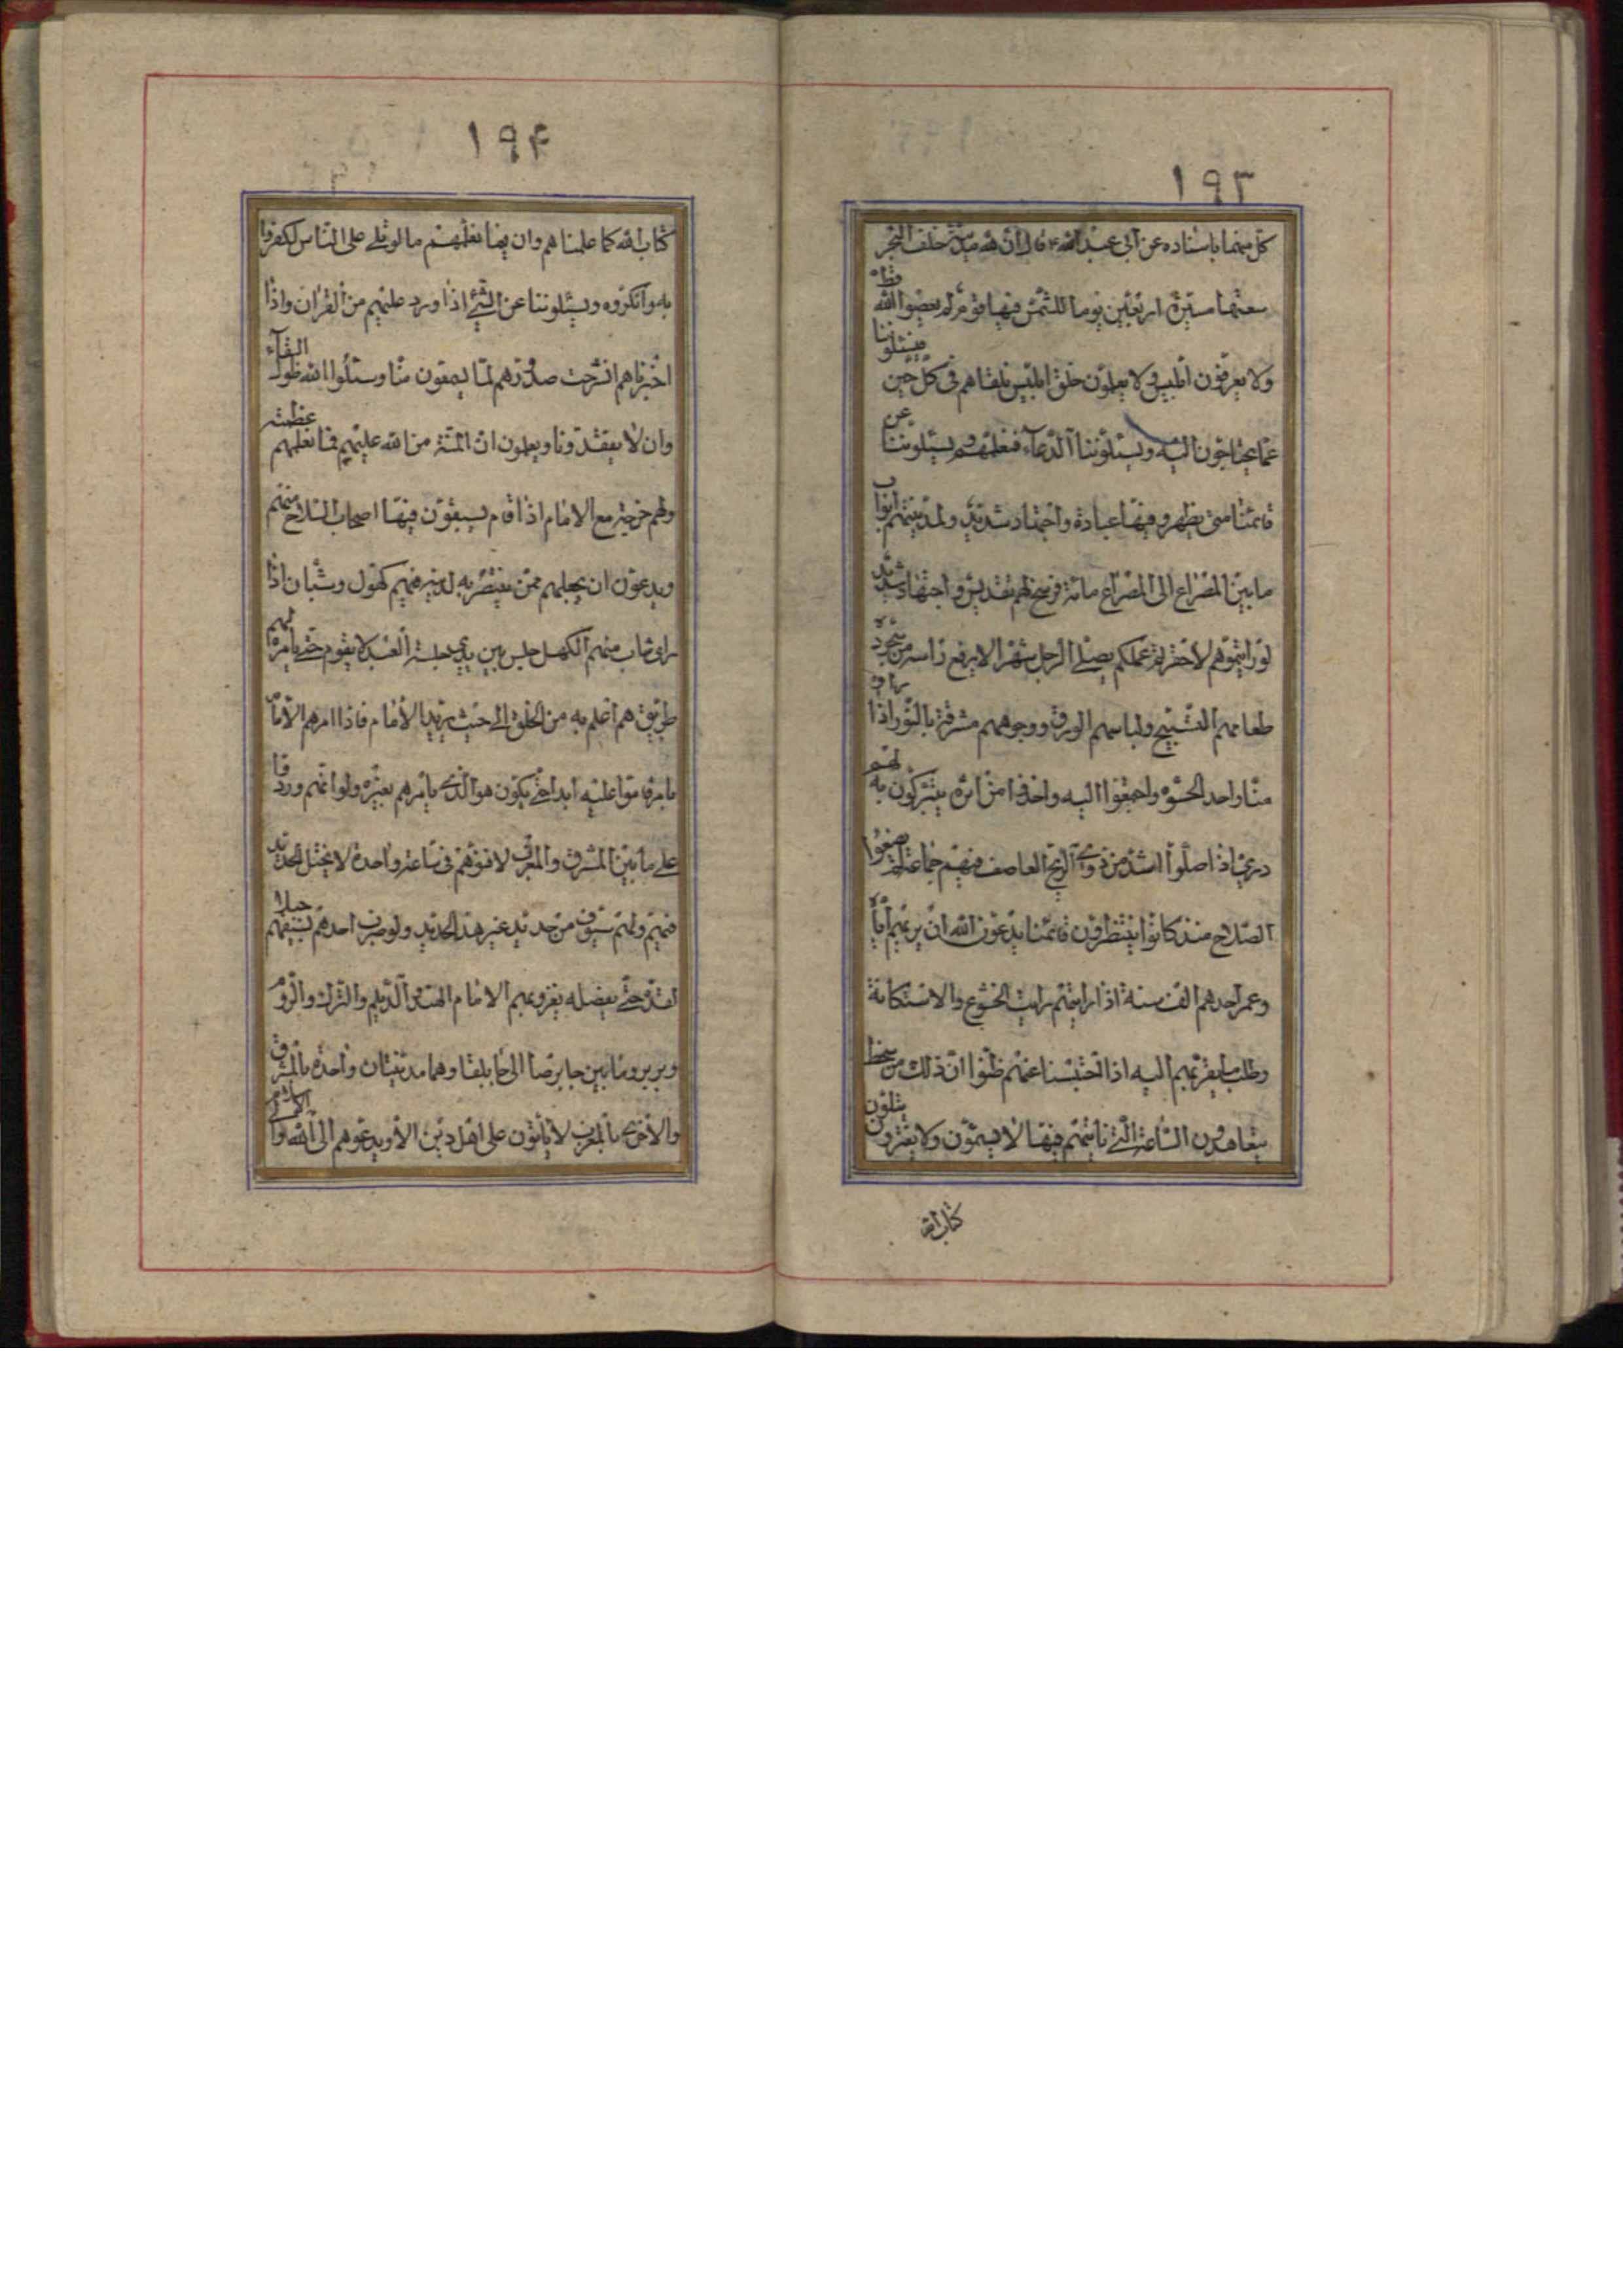 ١٩٣
كل منهما باسناده عن ابي عبد الله ع قال ان لله مدينة خلف البحر
سعتها مسيرة اربعين يوما للشمس فيها قوم لم يعصوا الله قط
ولا يعرفون ابليس ولا يعلمون خلق ابليس نلقاهم في كل حين فيسئلوننا
عما يحتاجون اليه ويسئلوننا الدعاء فنعلمهم ويسئلوننا عن
قائمنا متى يظهر وفيها عبادة واجتهاد شديد ولمدينتهم ابواب
ما بين المصراع الى المصراع مائة فرسخ لهم تقديس واجتهاد شديد
لو رايتموهم لاحتقرتم عملكم يصلي الرجل شهرا لا يرفع راسه من سجوده
طعامهم التسبيح ولباسهم الورق ووجوههم مشرقة بالنور اذا راوا
منا واحدا لحسوه واجتمعوا اليه واخذوا من اثره يتبركون به لهم
دوي اذا صلوا اشد من دوي الريح العاصف فيهم جماعة لم يضعوا
السلاح منذ كانوا ينتظرون قائمنا يدعون الله ان يريهم اياه
وعمر احدهم الف سنة اذا رايتهم رايت الخشوع والاستكانة
وطلب ما يقربهم اليه اذا احتبسنا عنهم ظنوا ان ذلك من سخط
يتعاهدون الساعة التي ناتيهم فيها لا يسئمون ولا يفترون يتلون
كتاب الله
١٩۴
كتاب الله كما علمناهم وان فيما نعلمهم ما لو تلي على الناس لكفروا
به وانكروه ويسئلوننا عن الشيئ اذا ورد عليهم من القران واذا
اخبرناهم انشرحت صدورهم لما يسمعون منا وسئلوا الله طول البقاء
وان لا يفقدونا ويعلمون ان المنة من الله عليهم فيما نعلمهم عظيمة
ولهم خرجة مع الامام اذا قام يسبقون فيها اصحاب السلاح منهم
ويدعون ان يجعلهم ممن ينتصر به لدينه فيهم كهول وشبان اذا
راى شاب منهم الكهل جلس بين يديه جلسة العبد لا يقوم حتى يامره لهم
طريق هم اعلم به من الخلق الى حيث يريد الامام فاذا امرهم الامام
بامر قاموا عليه ابدا حتى يكون هو الذي يامرهم بغيره ولو انهم وردوا
على ما بين المشرق والمغرب لافنوهم في ساعة واحدة لا يختل الحديد
فيهم ولهم سيوف من حديد غير هذا الحديد ولو ضرب احدهم بسيفه جبلا
لقده حتى يفصله يغزو بهم الامام الهند والديلم والترك والروم
وبربر وما بين جابرصا الى جابلقا وهما مدينتان واحدة بالمشرق
والاخرى بالمغرب لا ياتون على اهل دين الا ويدعوهم الى الله والى الاسلام